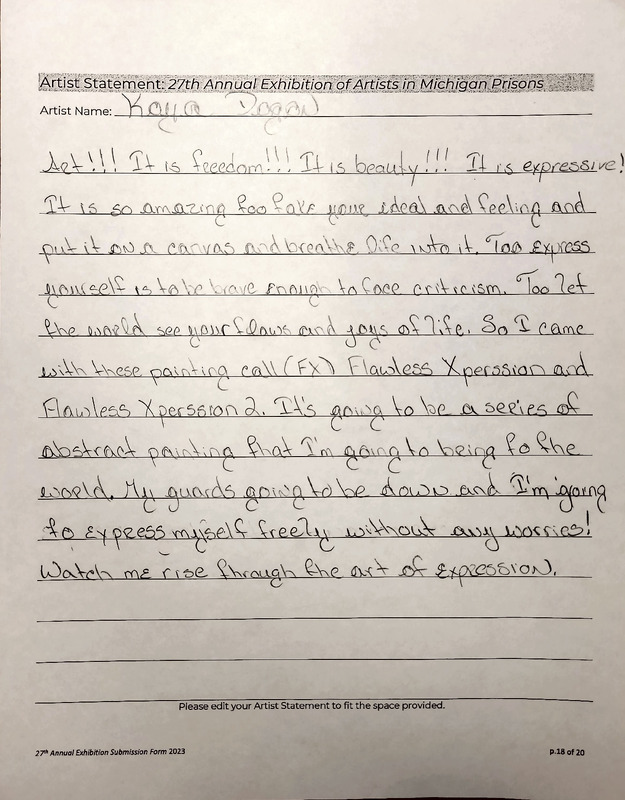 Artist Statement: 27th Annual Exhibition of Artists in Michigan Prisons
Artist Name: Kayla Dogan
Art!!! It is freedom!!! It is beauty!!! It is expressive!
It is so amazing too take your ideal and feeling and
put it on a canvas and breathe life into it. Too express
yourself is to be brave enough to face criticism. Too let
the world see your flaws and joys of life. So I came
with these painting call (FX) Flawless Xperssion and
Flawless Xperssion 2. It's going to be a series of
abstract painting that I'm going to being to the
world. My guards going to be down and I'm going
to express myself freely without any worries!
Watch me rise through the art of expression.
Please edit your Artist Statement to fit the space provided.
27th Annual Exhibition Submission Form 2023
p.18 of 20